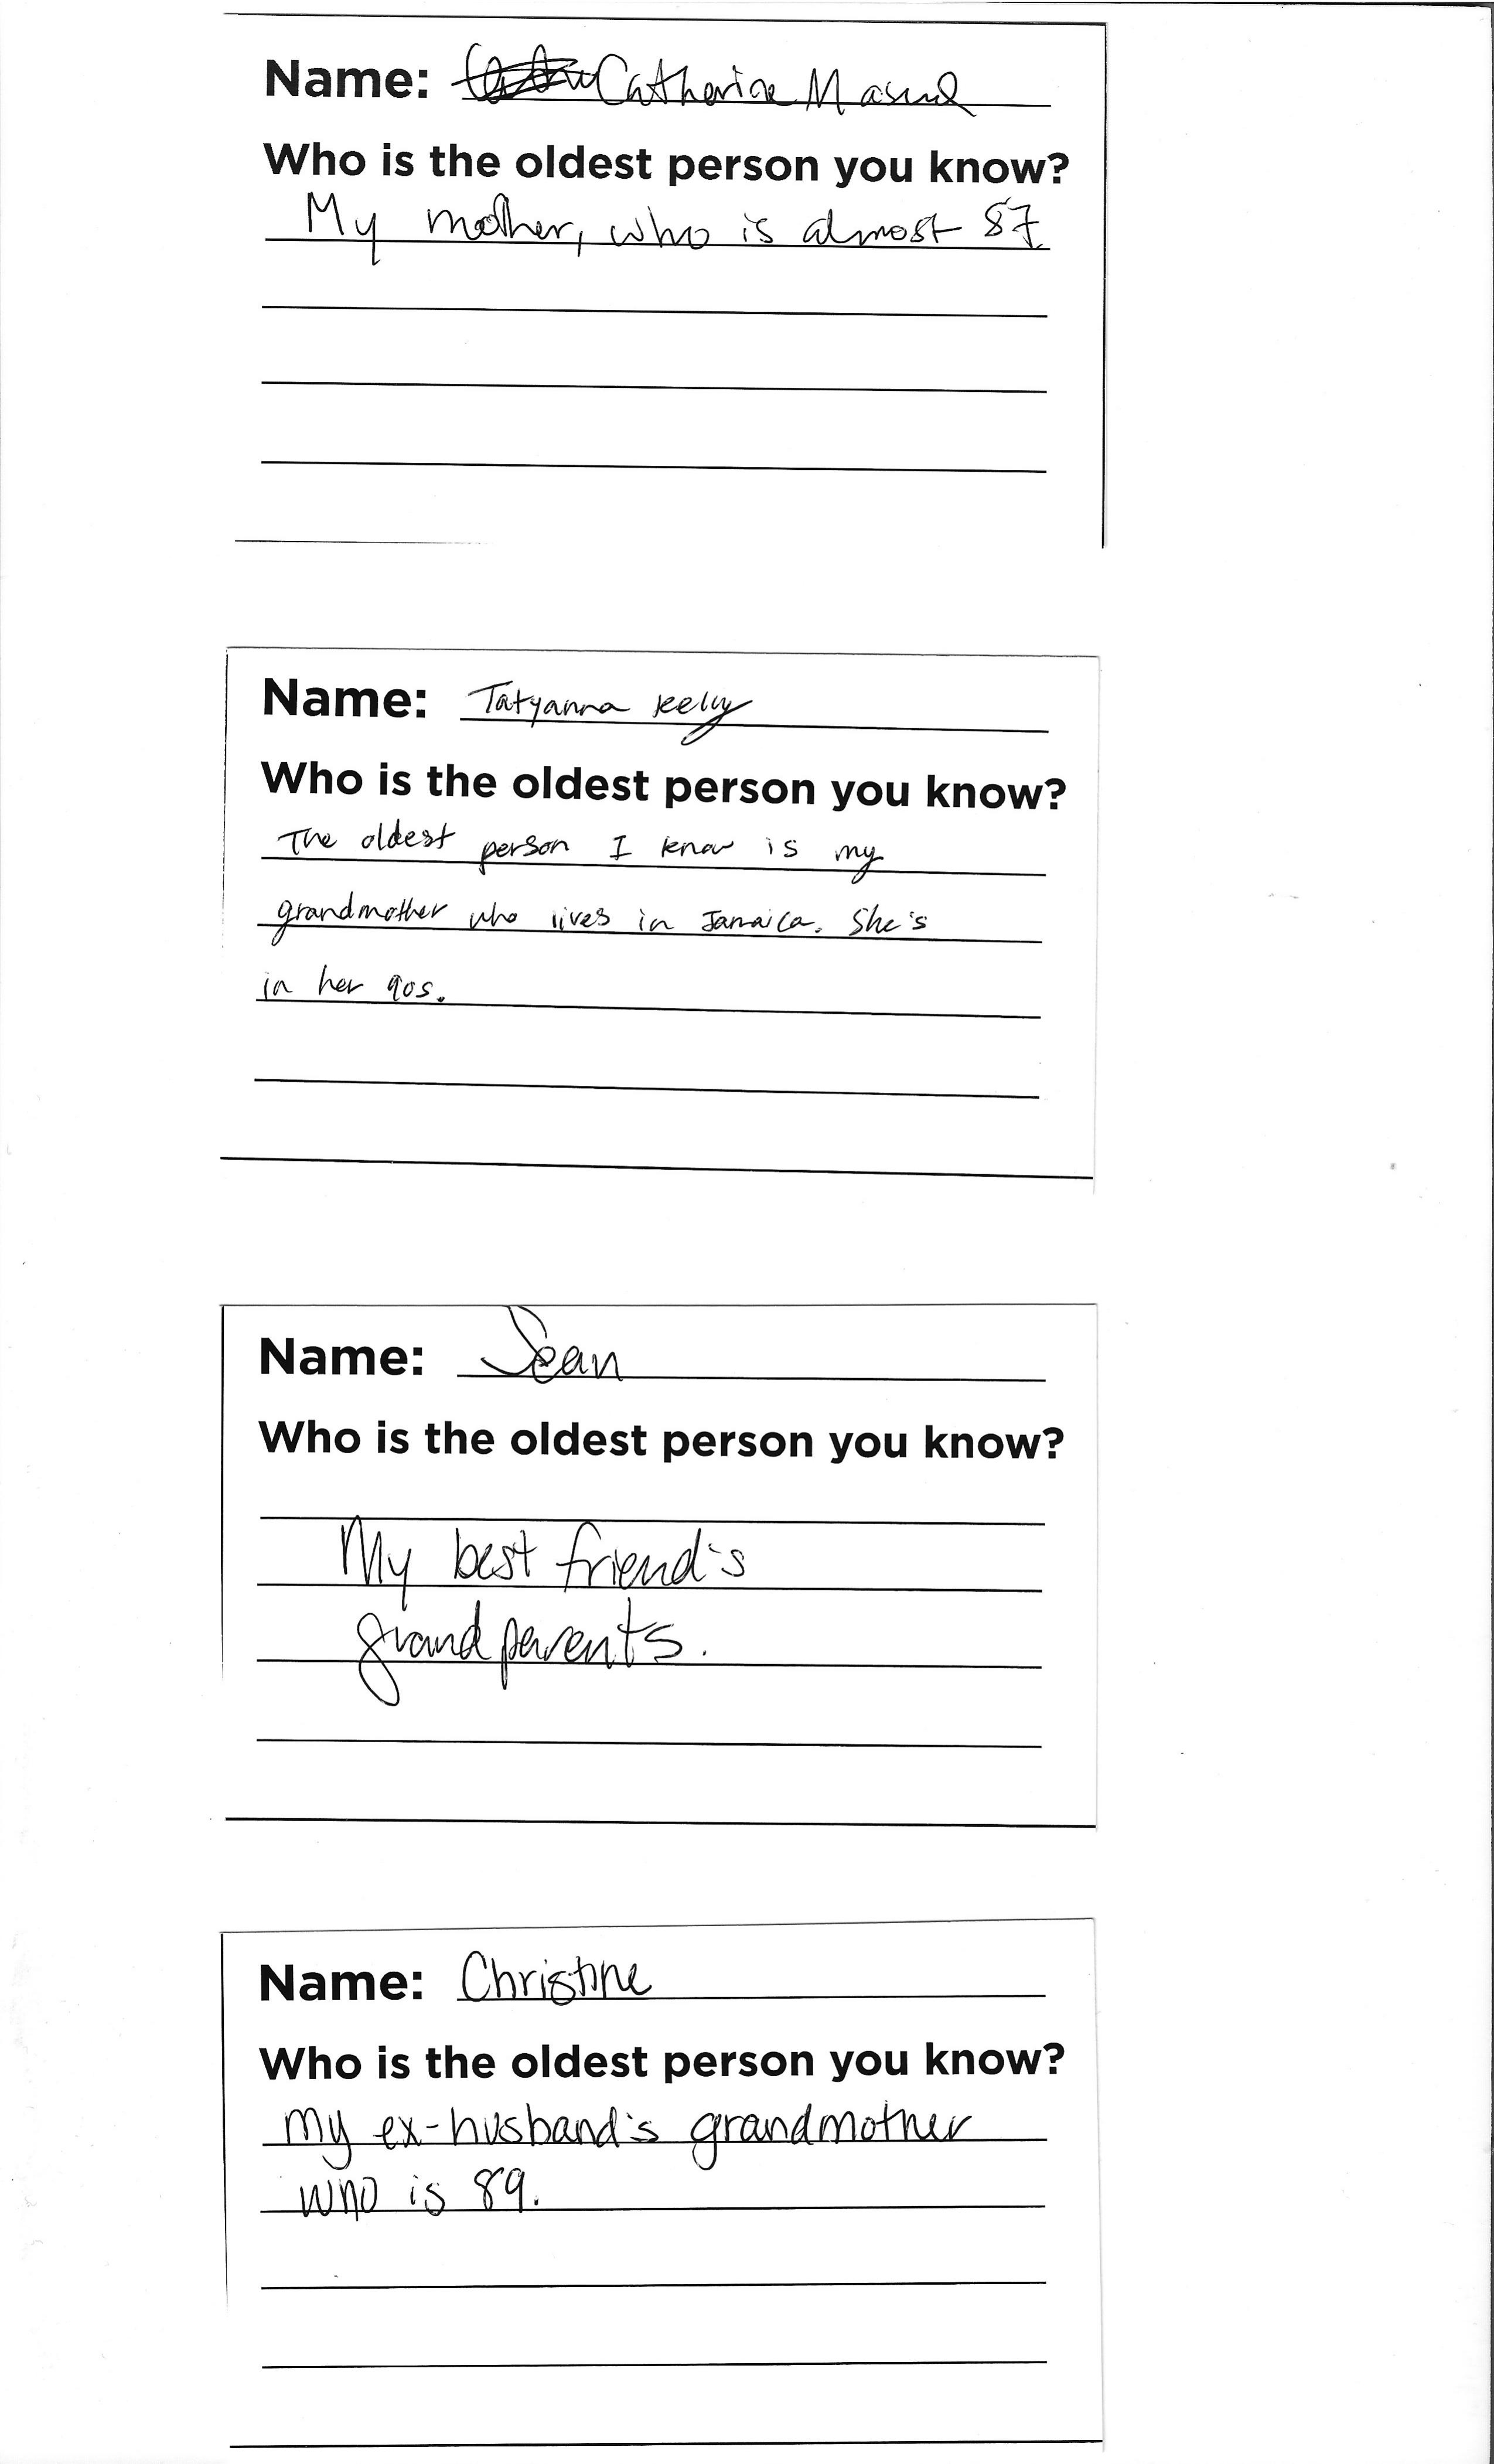 Name: Catherine Masud
Who is the oldest person you know?
My mother, who is almost 87
Name: Tatyanna Kelly
Who is the oldest person you know?
The oldest person I know is my
grandmother who lives in Jamaica. She's
in her 90s.
Name: Sean
Who is the oldest person you know?
My best friend's
grandparents.
Name: Christine
Who is the oldest person you know?
My ex-husband's grandmother
who is 89.